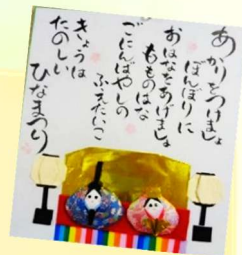 あかりをつけましょ
ぼんぼりに
おはなをあげましょ
もものはな
ごにんばやしの
ふえたいこ
きょうは
たのしい
ひなまつり